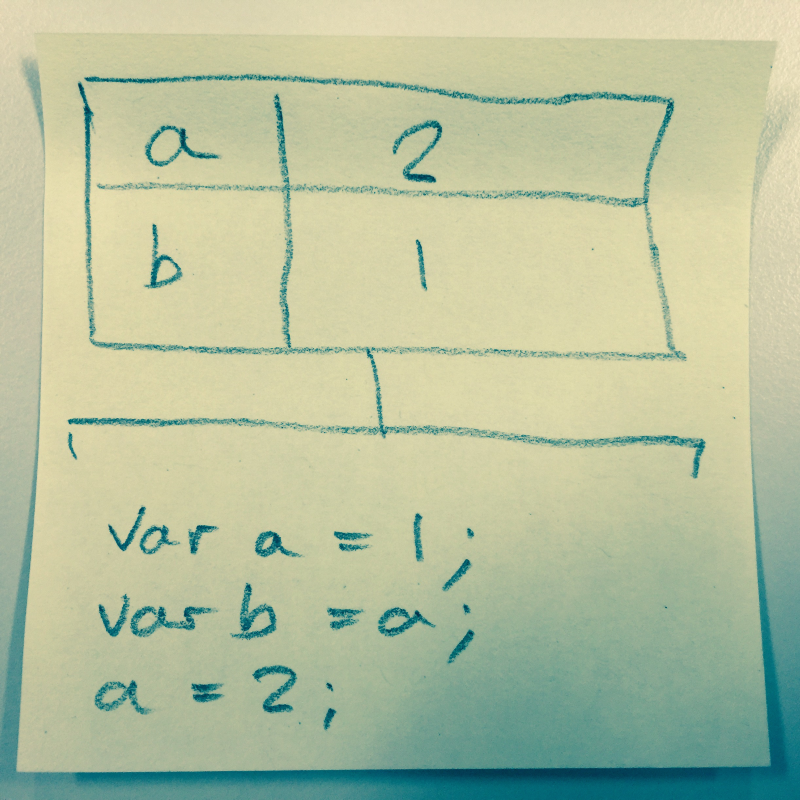 a 2
b 1
var a = 1;
var b = a;
a = 2;